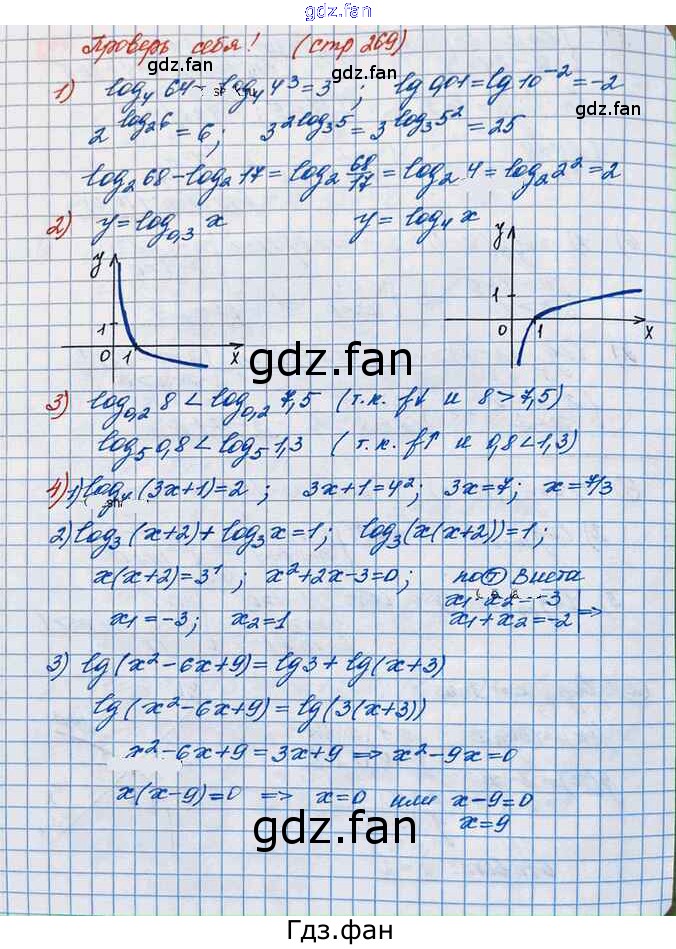 gdz.fan
Проверь себя! (стр 269)
1) log₄ 64 = log₄ 4³ = 3 ; lg 0,01 = lg 10⁻² = -2
2^(log₂6) = 6; 3^(2log₃5) = 3^(log₃5²) = 25
log₂ 68 - log₂ 17 = log₂ 68/17 = log₂ 4 = log₂ 2² = 2
2) y = log₀,₃ x y = log₄ x
y 1 0 1 x
y 1 0 1 x
3) log₀,₂ 8 < log₀,₂ 7,5 (т.к. f↓ и 8 > 7,5)
log₅ 0,8 < log₅ 1,3 (т.к. f↑ и 0,8 < 1,3)
4) 1) log₄ (3x+1) = 2 ; 3x+1 = 4²; 3x = 7; x = 7/3
2) log₃ (x+2) + log₃ x = 1; log₃ (x(x+2)) = 1;
x(x+2) = 3¹ ; x²+2x-3=0; по Т Виета
x₁ · x₂ = -3
x₁ + x₂ = -2 | =>
x₁ = -3; x₂ = 1
3) lg (x² - 6x + 9) = lg 3 + lg (x+3)
lg (x² - 6x + 9) = lg (3(x+3))
x² - 6x + 9 = 3x + 9 => x² - 9x = 0
x(x-9) = 0 => x = 0 или x - 9 = 0
x = 9
gdz.fan
gdz.fan
gdz.fan
gdz.fan
gdz.fan
gdz.fan
Гдз.фан